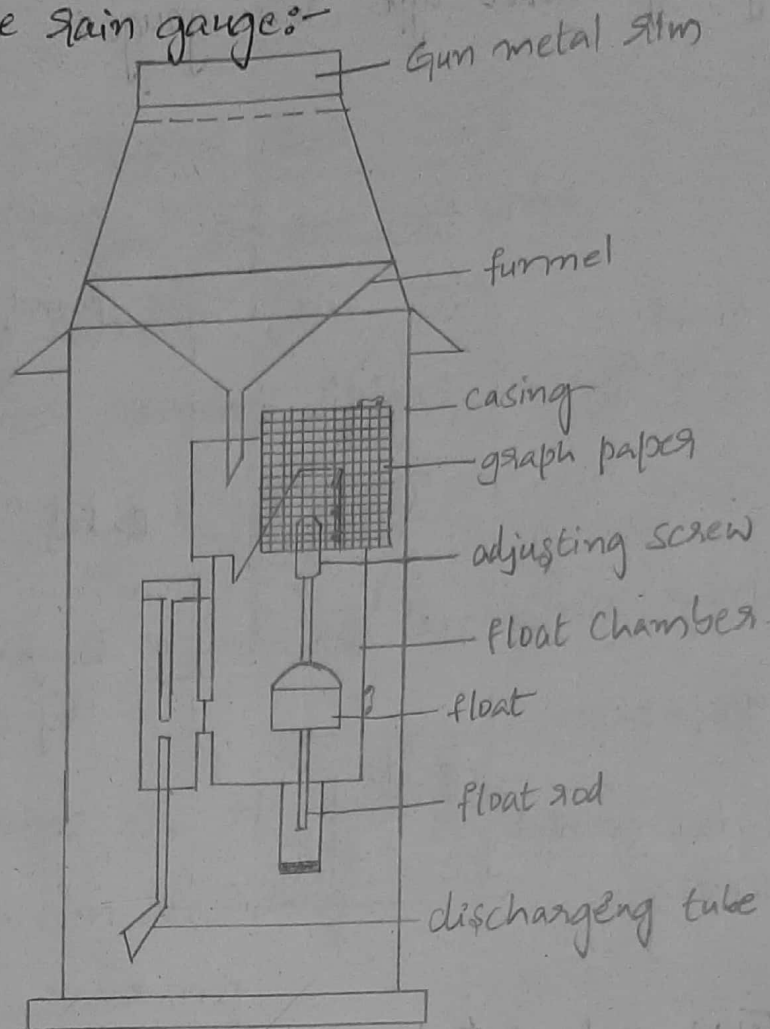 e rain gauge:-
Gun metal rim
funnel
casing
graph paper
adjusting screw
float chamber
float
float rod
discharging tube